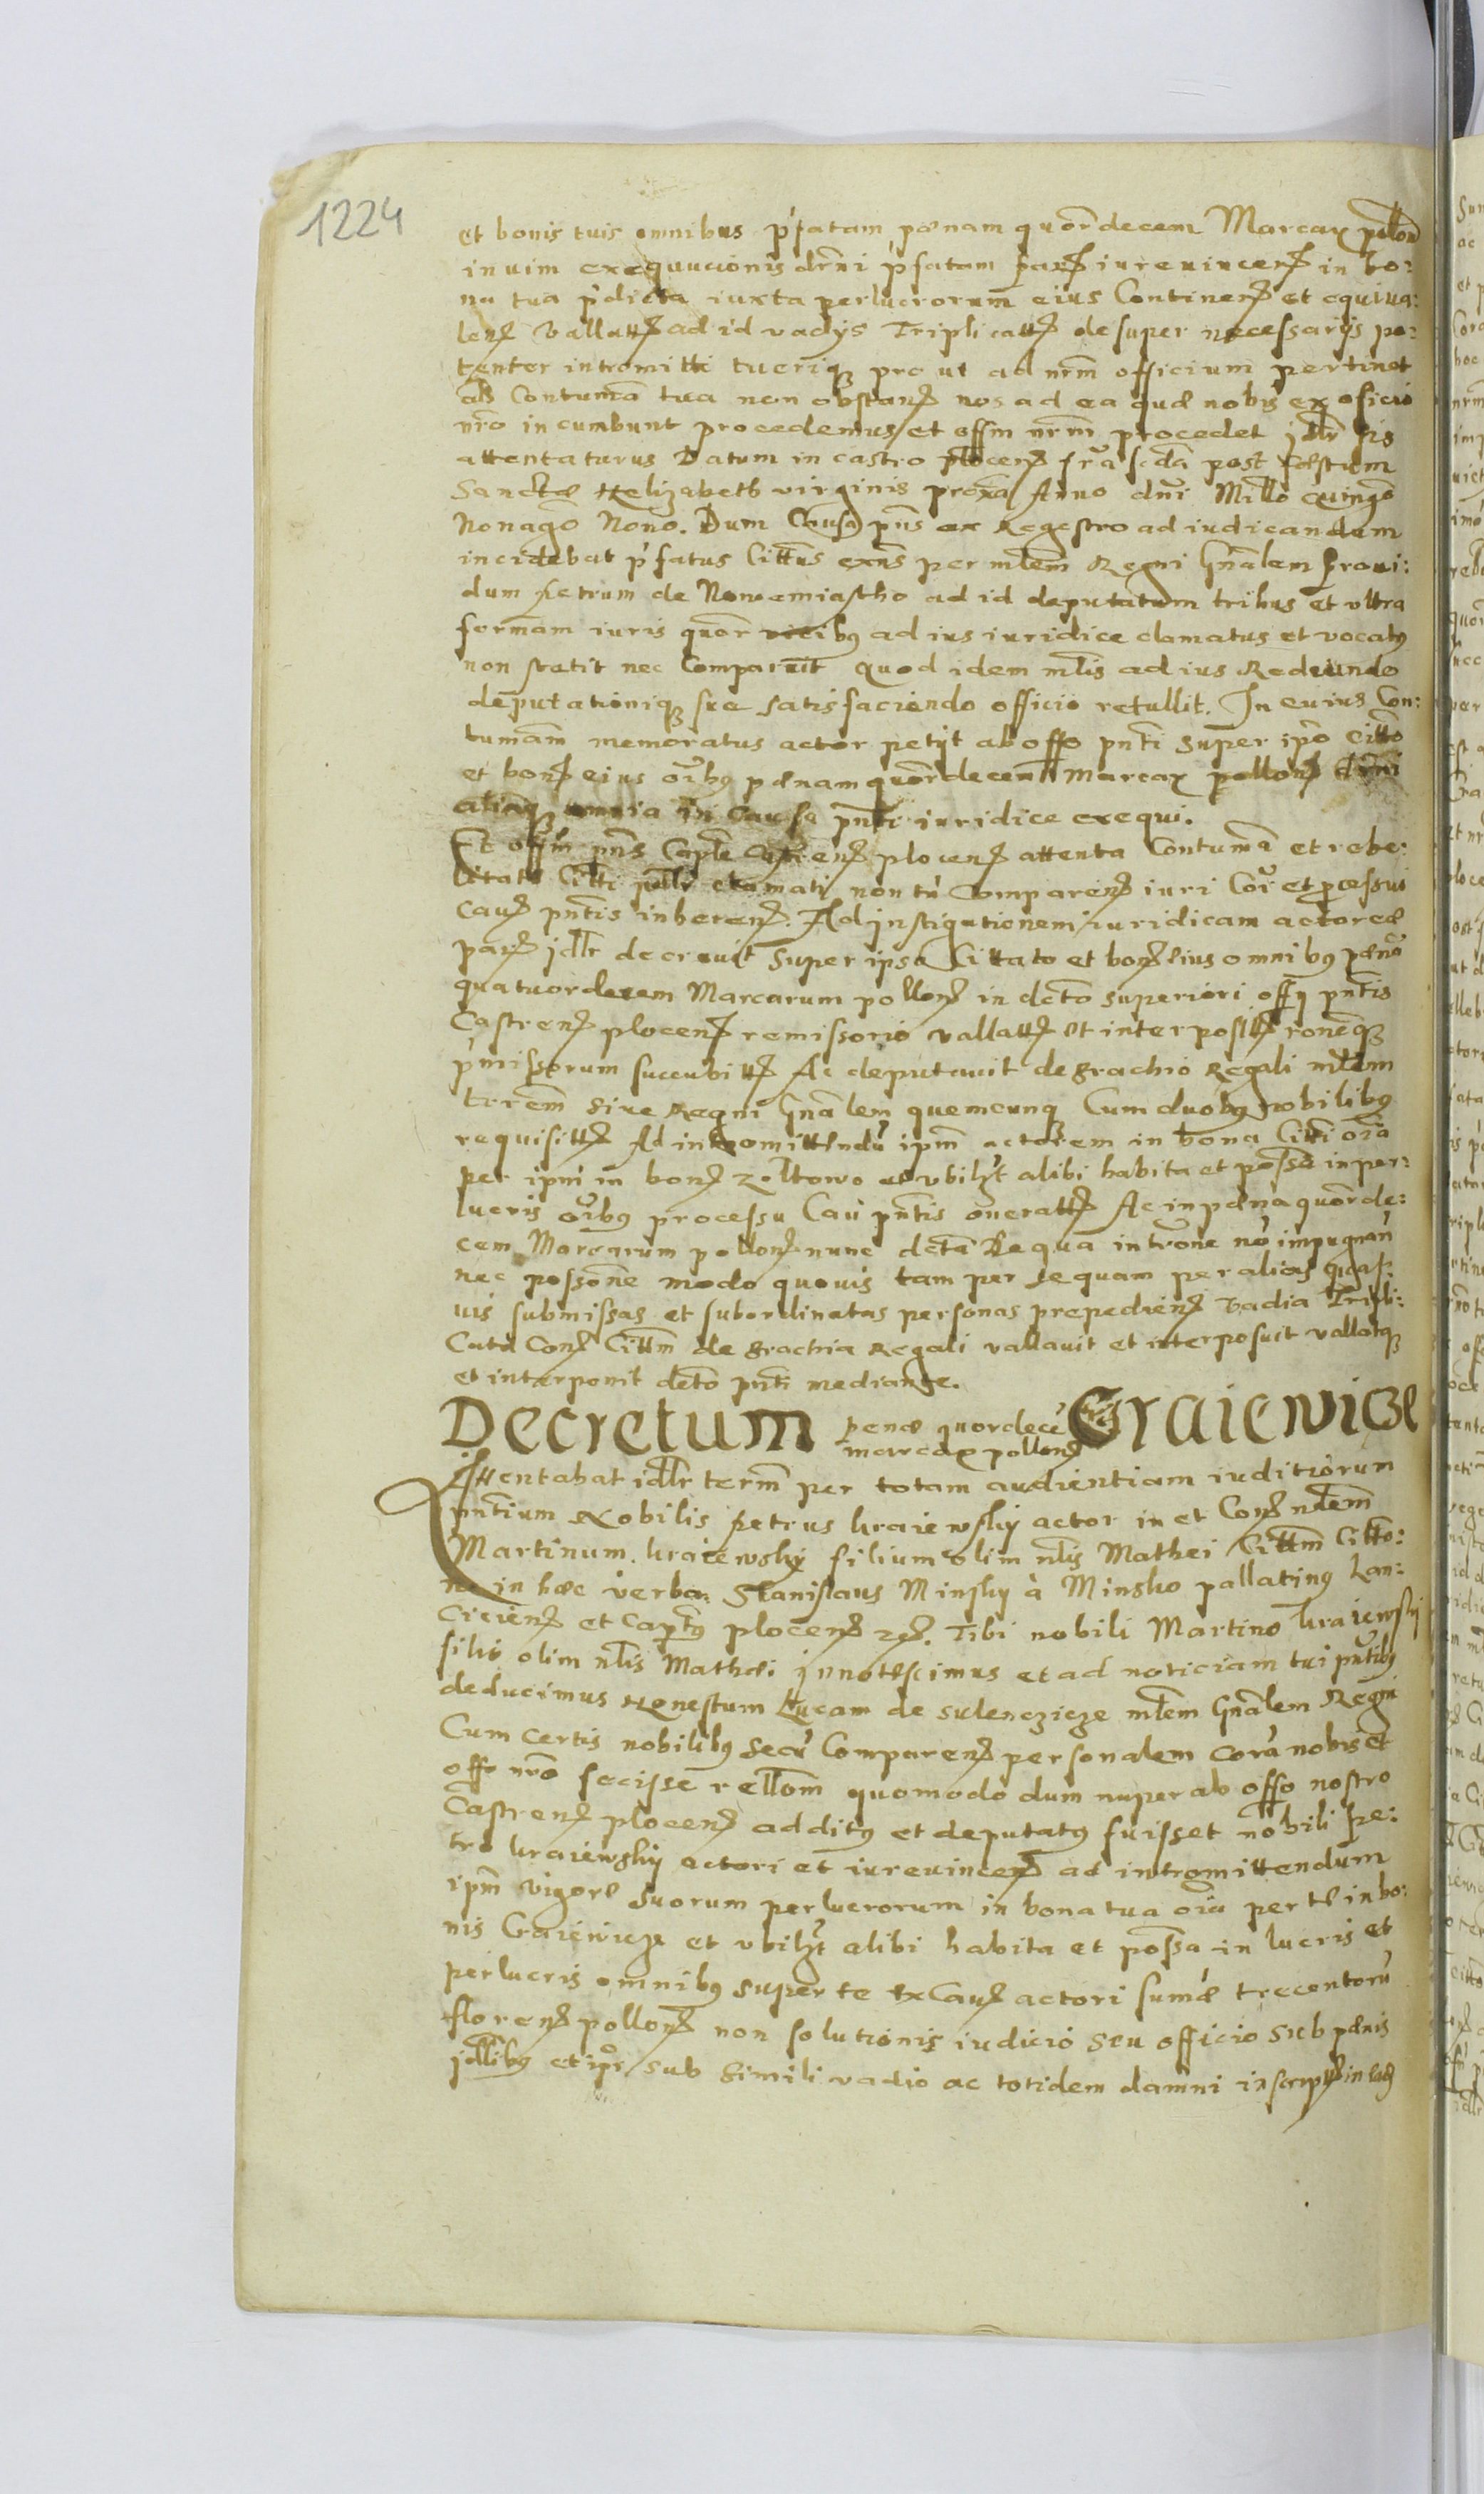 1224
et bonis tuis omnibus p'fatam pœnam quor̃decem Marcaꝝ pollon̄
in uim exequucionis dr̃ni p'fatam parꝭ iureuincenꝭ in bo:
na tua p'dicta iuxta perlucrorum eius Continenꝭ et equiua:
lenꝭ vallattꝭ ad id vadijs Triplicattꝭ desuper necessarijs po:
tenter intromitti tueriqꝫ pro ut ad nrm̃ officium pertinet
als Contumã tua non obstanꝭ nos ad ea quæ nobis ex oficio
nr̃o incumbunt procedemus et offm̃ nrm̃ procedet jdlr̃ sis
attentaturus Datum in castro plocenꝭ fr̃a scd̃a post festum
Sanctæ Helizabeth virginis prox̃a Anno dn̄i Mill̃o Quingõ
Nonagõ Nono. Dum Causa pn̄s ex Regestro ad iudicandum
incidebat p'fatus Cittũs exñs per ml̃em Regni Gn̄alem proui:
dum Petrum de Nowemiastho ad id deputatum tribus et vltra
formam iuris quor̃ vicibꝰ ad ius iuridice clamatus et vocatꝰ
non stetit nec Comparuit quod idem ml̃is ad ius Redeundo
deputationiqꝫ suæ satisfaciendo officio retullit. In euius Con:
tumam̃ memoratus actor petijt ab offo pn̄ti super ip̃o Citt̃o
et bonꝭ eius oĩbꝰ pœnam quor̃decem Marcaꝝ pollonꝭ
aliaqꝫ omnia in causa pn̄ti iuridice exequi.
Et offm̃ pn̄s Capl̃e Castrenꝭ plocenꝭ attenta Contumã et rebe:
litate Citt̃i jdlr̃ clamati non tñ Comparenꝭ iuri Cor̃ et processui
Cauꝭ pn̄tis inherenꝭ. Ad instigationem iuridicam actoreæ
parꝭ jdlr̃ decreuit super ipso Cittato et bonꝭ eius omnibꝰ pœnã
quatuordecem Marcarum pollonꝭ in dct̃o superiori offꝭ pn̄tis
Castrenꝭ plocenꝭ remissorio vallattꝭ et interposittꝭ roneqꝫ
p'missorum succubittꝭ Ac deputauit de grachio Regali ml̃em
trrem̃ siue Regni Gn̄alem quemcunqꝫ Cum duobꝰ nobilibꝰ
requisittꝭ Ad intromittendũ ipm̃ actorem in bona Citt̃i oĩa
per ipm̃ in bonꝭ Zoltowo et vbilz̃t alibi habita et poss̃a in per:
lucris oĩbꝰ processu Cau pn̄tis oneratꝭ Ac in pœna quor̃de:
cem Marcarum pollonꝭ nunc dct̃a De qua intr̃one nõ impugnan
nec poss̃one modo quouis tam per se quam per alias quas
uis submissas et subordinatas personas prepedienꝭ vadia Tripli:
Cata Conꝭ Citt̃m de grachia Regali vallauit et interposuit vallatqꝫ
et interponit dct̃o pn̄ti mediante.
Decretum penæ quordecẽ Graiewicze
marcaꝝ pollonꝭ
Attentabat jdlr̃ term̃ per totam audientiam iuditiorum
pn̄tium Nobilis Petrus kraiewsky actor in et Conꝭ nl̃em
Martinum kraiewsky filium olim nl̃is Mathei Citt̃m Citt̃o:
ne in hæc verba. Stanislaus Minsky à Minsko pallatinꝰ Lan:
cicienꝭ et Captꝰ plocenꝭ zꝭ. Tibi nobili Martino kraiewski
filio olim nl̃is Mathæi jnnotescimus et ad noticiam tui pn̄tibꝰ
deducimus Honestum Lucam de sulenczicze ml̃em Gn̄alem Regni
Cum certis nobilibꝰ secũ Comparenꝭ personalem corã nobis et
offo nr̃o fecisse rell̃om quomodo dum nuper ab offo nostro
Castrenꝭ plocenꝭ additꝰ et deputatꝰ fuisset nobili Pe:
tro kraiewsky actori et iureuincenꝭ ad intromittendum
ipm̃ vigore suorum perlucrorum in bona tua oĩa per te in bo:
nis Graiewicze et vbilz̃t alibi habita et poss̃a in lucris et
perlucris omnibꝰ super te ex Cauꝭ actori sumæ trecentorũ
florenꝭ pollonꝭ non solutionis iudicio seu officio sub pœnis
jdlibꝰ et ipr̃ sub simili vadio ac totidem damni inscriptꝭ in eadꝭ